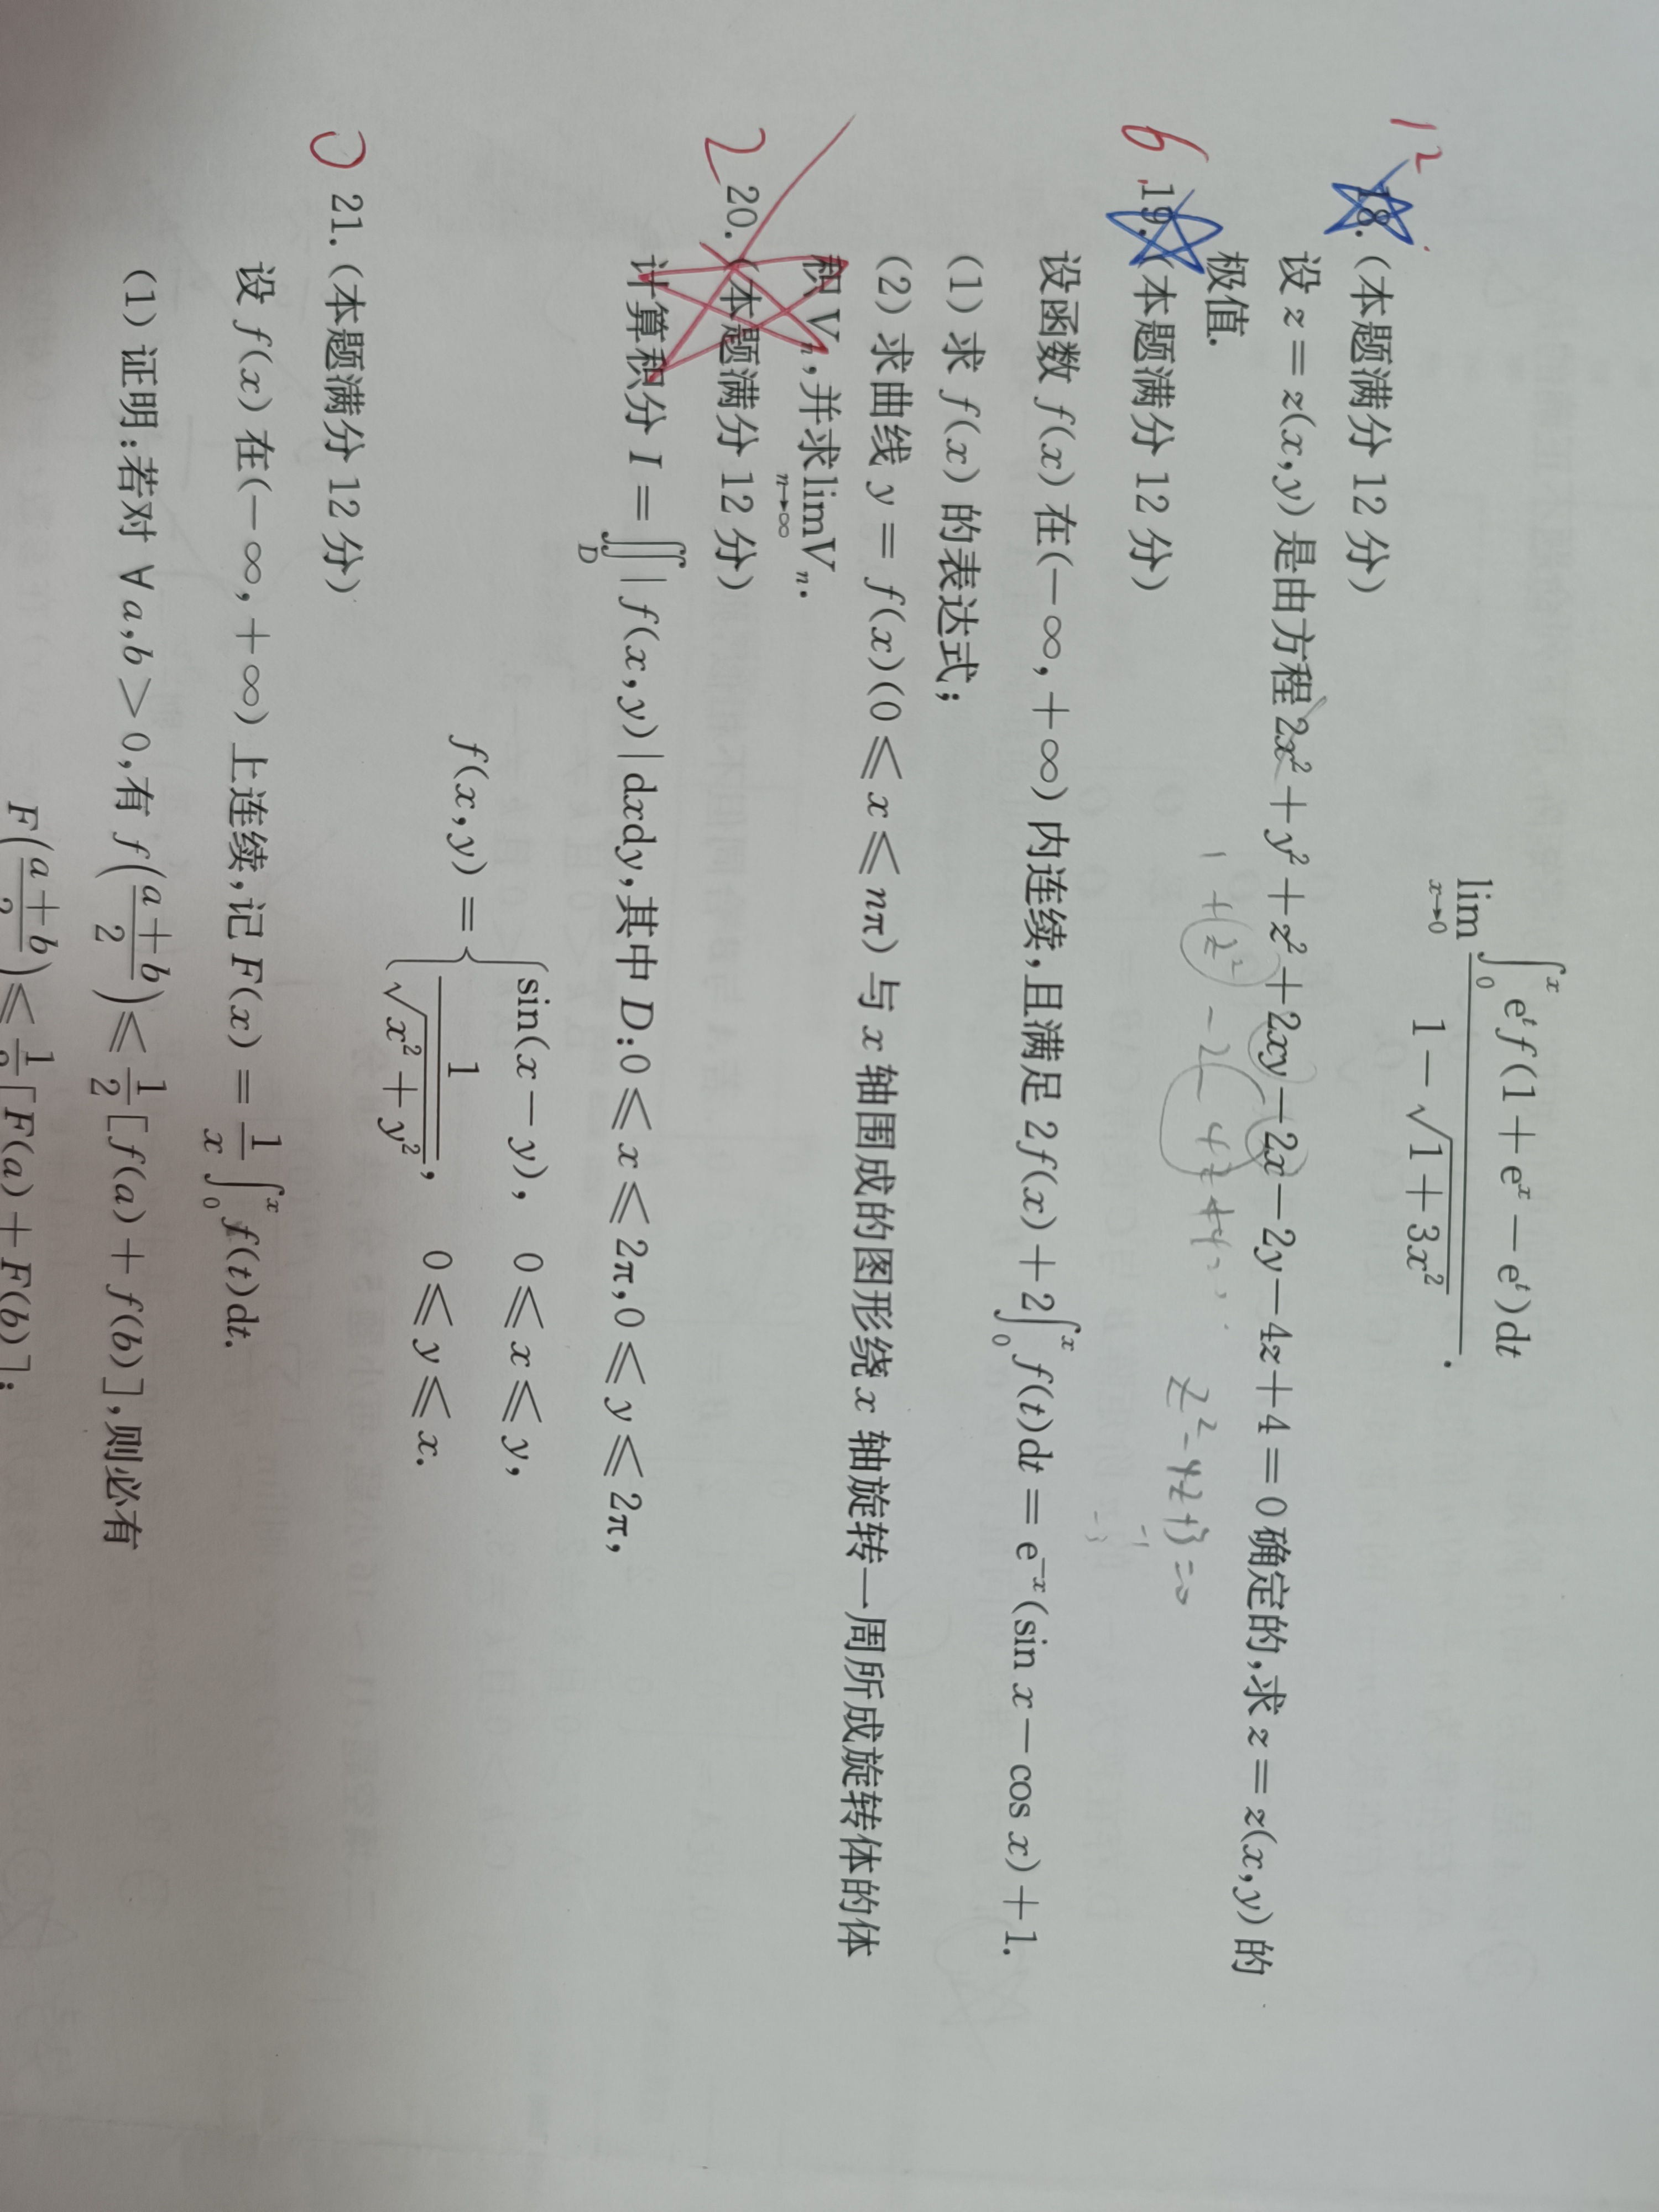 lim_{x→0} \frac{∫_0^x e^t f(1+e^x-e^t)dt}{1-\sqrt{1+3x^2}}.
12
18.(本题满分 12 分)
设 z = z(x,y) 是由方程 2x²+y²+z²+2xy-2x-2y-4z+4=0 确定的,求 z = z(x,y) 的
极值.
z²-4z+3=0
-1
-3
6
19.(本题满分 12 分)
设函数 f(x) 在(-∞,+∞) 内连续,且满足 2f(x)+2∫_0^x f(t)dt = e^{-x}(sin x-cos x)+1.
(1) 求 f(x) 的表达式;
(2) 求曲线 y = f(x)(0≤x≤nπ) 与 x 轴围成的图形绕 x 轴旋转一周所成旋转体的体
积 V_n,并求 lim_{n→∞} V_n.
2
20.(本题满分 12 分)
计算积分 I = ∬_D |f(x,y)|dxdy,其中 D:0≤x≤2π,0≤y≤2π,
f(x,y) = { sin(x-y), 0≤x≤y,
\frac{1}{\sqrt{x²+y²}}, 0≤y≤x.
0
21.(本题满分 12 分)
设 f(x) 在(-∞,+∞) 上连续,记 F(x) = \frac{1}{x}∫_0^x f(t)dt.
(1) 证明:若对 ∀a,b>0,有 f(\frac{a+b}{2})≤\frac{1}{2}[f(a)+f(b)],则必有
F(\frac{a+b}{2})≤\frac{1}{2}[F(a)+F(b)];